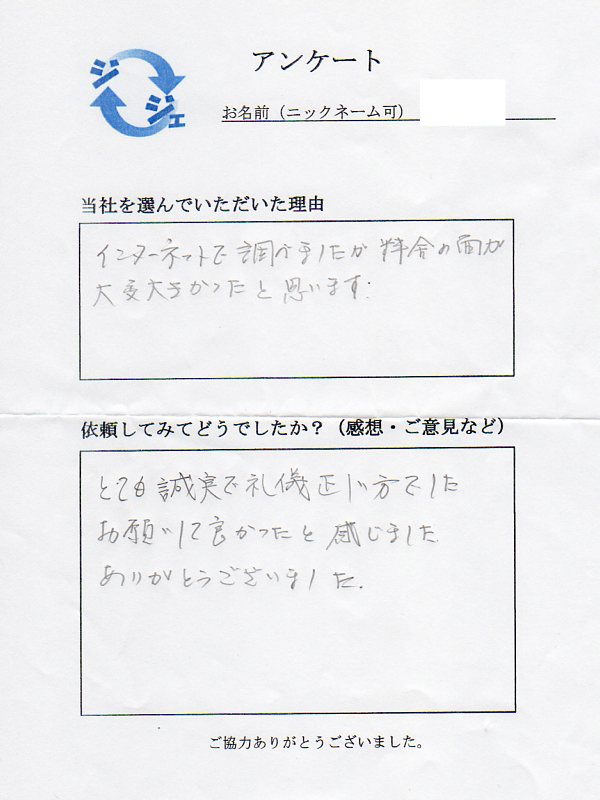 ジジェ
アンケート
お名前（ニックネーム可）
当社を選んでいただいた理由
インターネットで調べましたが料金の面が
大変大きかったと思います.
依頼してみてどうでしたか？（感想・ご意見など）
とても誠実で礼儀正しい方でした
お願いして良かったと感じました
ありがとうございました.
ご協力ありがとうございました。